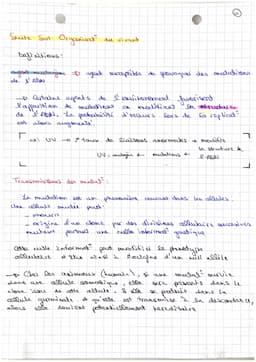 Suite Sur Organisat° du vivant
Définitions :
agent mutagène → agent susceptible de provoquer des mutations
de l'ADN
→ Certains agents de l'environnement favorisent
l'apparition de mutations en modifiant la structure
de l'ADN. La probabilité d'erreurs lors de la réplicat°
est alors augmentée.
ex : UV → taux de liaisons anormales → modifie
la structure de
UV : mutagène → mutations l'ADN
Transmissions des mutat° :
La mutation est un phénomène courant dans les cellules.
Une cellule mutée peut :
- mourir
- origine d'un clone par des divisions cellulaires successives
mutant portant une information génétique
Cette information peut modifier le phénotype
cellulaire et être à l'origine d'un allèle
→ Chez les animaux (humain), si une mutat° survient
dans une cellule somatique, elle sera présente dans le
clone issu de cette cellule. Si elle se produit dans la
cellule germinale et qu'elle est transmise à la descendance,
alors elle devient potentiellement héréditaire